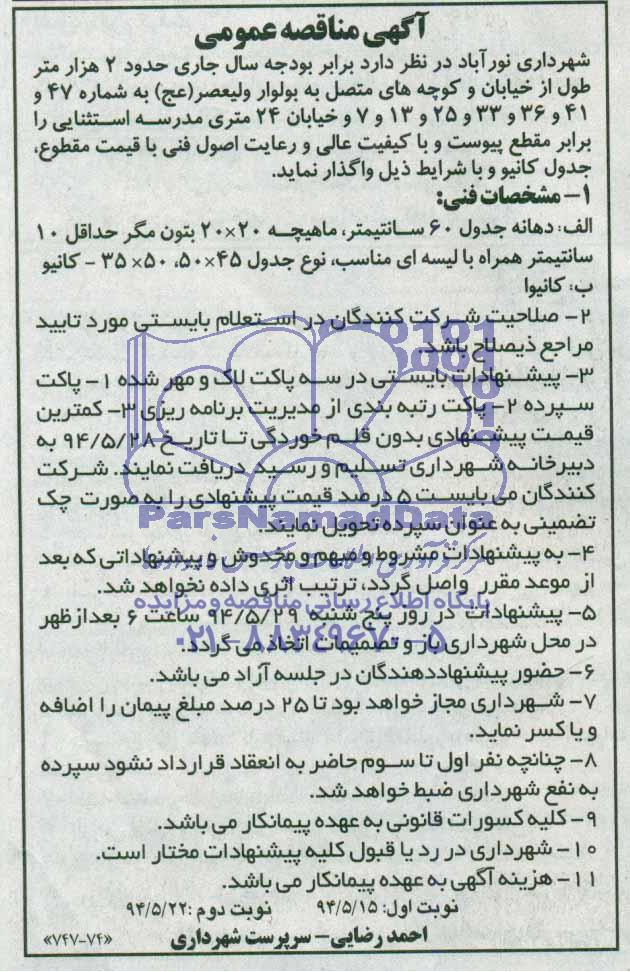 آگهی مناقصه عمومی
شهرداری نورآباد در نظر دارد برابر بودجه سال جاری حدود ۲ هزار متر
طول از خیابان و کوچه های متصل به بولوار ولیعصر(عج) به شماره ۴۷ و
۴۱ و ۳۶ و ۳۳ و ۲۵ و ۱۳ و ۷ و خیابان ۲۴ متری مدرسه استثنایی را
برابر مقطع پیوست و با کیفیت عالی و رعایت اصول فنی با قیمت مقطوع،
جدول کانیو و با شرایط ذیل واگذار نماید.
۱- مشخصات فنی:
الف: دهانه جدول ۶۰ سانتیمتر، ماهیچه ۲۰×۲۰ بتون مگر حداقل ۱۰
سانتیمتر همراه با لیسه ای مناسب، نوع جدول ۴۵×۵۰، ۵۰×۳۵ - کانیو
ب: کانیوا
۲- صلاحیت شرکت کنندگان در استعلام بایستی مورد تایید
مراجع ذیصلاح باشد.
۳- پیشنهادات بایستی در سه پاکت لاک و مهر شده ۱- پاکت
سپرده ۲- پاکت رتبه بندی از مدیریت برنامه ریزی ۳- کمترین
قیمت پیشنهادی بدون قلم خوردگی تا تاریخ ۹۴/۵/۲۸ به
دبیرخانه شهرداری تسلیم و رسید دریافت نمایند. شرکت
کنندگان می بایست ۵ درصد قیمت پیشنهادی را به صورت چک
تضمینی به عنوان سپرده تحویل نمایند.
ParsNamadData
۴- به پیشنهادات مشروط و مبهم و مخدوش و پیشنهاداتی که بعد
از موعد مقرر واصل گردد، ترتیب اثری داده نخواهد شد.
پایگاه اطلاع رسانی مناقصه و مزایده
۵- پیشنهادات در روز پنج شنبه ۹۴/۵/۲۹ ساعت ۶ بعدازظهر
در محل شهرداری باز و تصمیمات اتخاذ می گردد.
۰۲۱-۸۸۳۴۹۶۷۰-۵
۶- حضور پیشنهاددهندگان در جلسه آزاد می باشد.
۷- شهرداری مجاز خواهد بود تا ۲۵ درصد مبلغ پیمان را اضافه
و یا کسر نماید.
۸- چنانچه نفر اول تا سوم حاضر به انعقاد قرارداد نشود سپرده
به نفع شهرداری ضبط خواهد شد.
۹- کلیه کسورات قانونی به عهده پیمانکار می باشد.
۱۰- شهرداری در رد یا قبول کلیه پیشنهادات مختار است.
۱۱- هزینه آگهی به عهده پیمانکار می باشد.
نوبت اول: ۹۴/۵/۱۵ نوبت دوم: ۹۴/۵/۲۲
احمد رضایی- سرپرست شهرداری
«۷۴۷-۷۴»